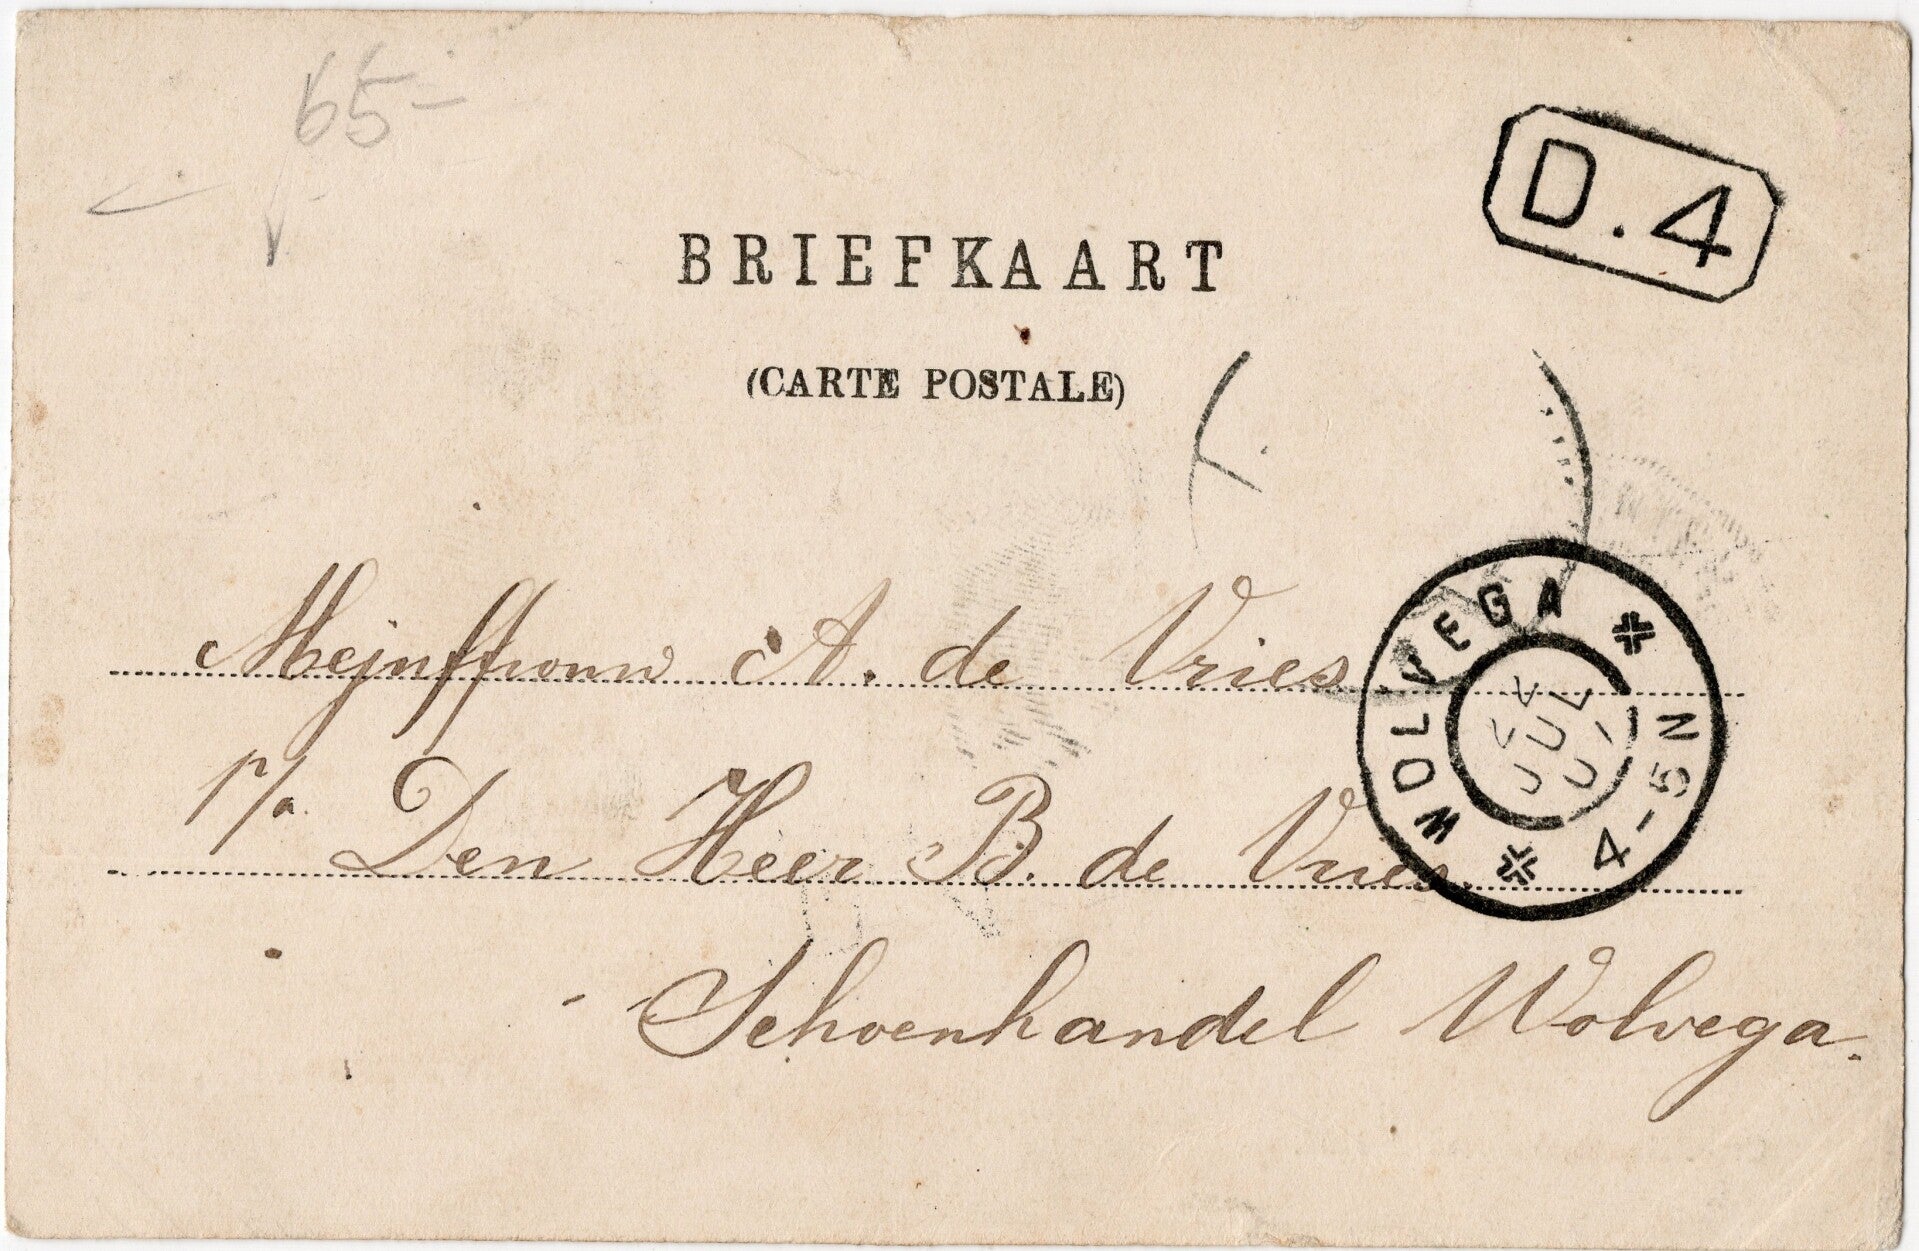 65-
D.4
BRIEFKAART
(CARTE POSTALE)
Mejuffrouw A. de Vries
p/a. Den Heer B. de Vries.
Schoenhandel Wolvega.
WOLVEGA
4-5N
JUL